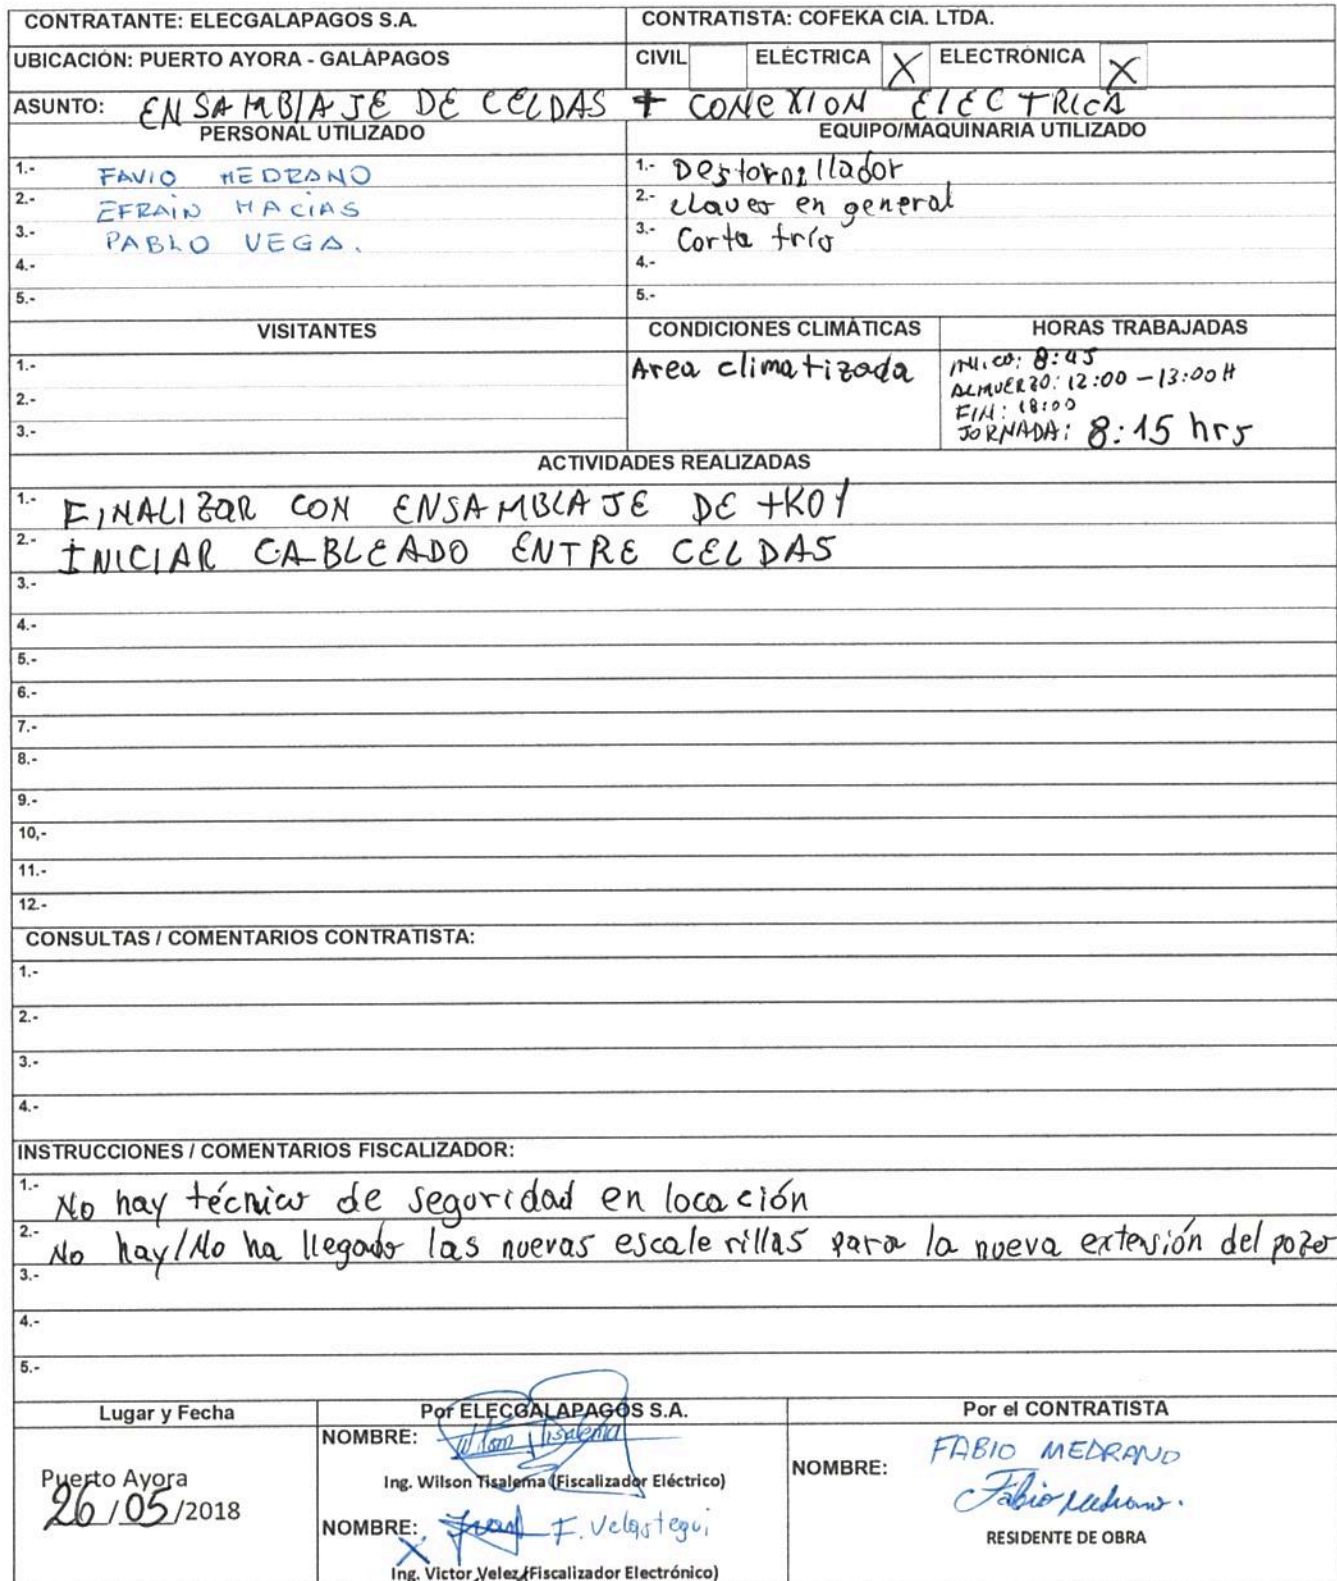 CONTRATANTE: ELECGALAPAGOS S.A.
CONTRATISTA: COFEKA CIA. LTDA.
UBICACIÓN: PUERTO AYORA - GALÁPAGOS
CIVIL ELÉCTRICA X ELECTRÓNICA X
ASUNTO: ENSAMBLAJE DE CELDAS + CONEXION ELECTRICA
PERSONAL UTILIZADO
1.- FAVIO MEDRANO
2.- EFRAIN MACIAS
3.- PABLO VEGA.
4.-
5.-
EQUIPO/MAQUINARIA UTILIZADO
1.- Destornillador
2.- llaves en general
3.- Corta frío
4.-
5.-
VISITANTES
1.-
2.-
3.-
CONDICIONES CLIMÁTICAS
Area climatizada
HORAS TRABAJADAS
INICO: 8:45
ALMUERZO: 12:00 - 13:00 H
FIN: 18:00
JORNADA: 8:15 hrs
ACTIVIDADES REALIZADAS
1.- FINALIZAR CON ENSAMBLAJE DE +K01
2.- INICIAR CABLEADO ENTRE CELDAS
3.-
4.-
5.-
6.-
7.-
8.-
9.-
10,-
11.-
12.-
CONSULTAS / COMENTARIOS CONTRATISTA:
1.-
2.-
3.-
4.-
INSTRUCCIONES / COMENTARIOS FISCALIZADOR:
1.- No hay técnico de seguridad en locación
2.- No hay/No ha llegado las nuevas escalerillas para la nueva extensión del pozo
3.-
4.-
5.-
Lugar y Fecha
Puerto Ayora
26/05/2018
Por ELECGALAPAGOS S.A.
NOMBRE: Wilson Tisalema
Ing. Wilson Tisalema (Fiscalizador Eléctrico)
NOMBRE: F. Velastegui
X
Ing. Victor Velez (Fiscalizador Electrónico)
Por el CONTRATISTA
FABIO MEDRANO
NOMBRE: Fabio Medrano.
RESIDENTE DE OBRA